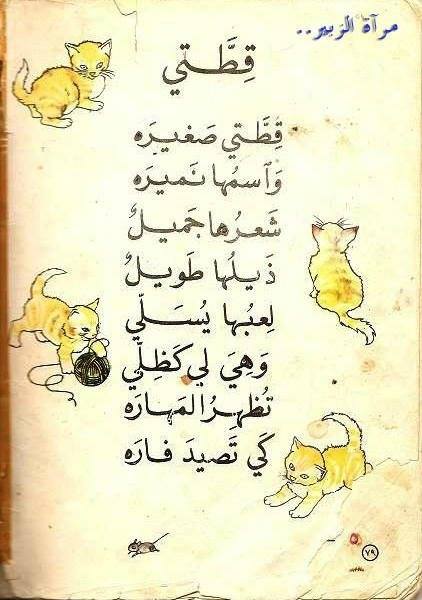 مرآة الزبير..
قِطَّتي
قِطَّتي صَغيرَه
وَٱسمُها نَميرَه
شَعرُها جَميلٌ
ذَيلُها طَويلٌ
لِعبُها يُسَلّي
وَهِيَ لي كَظِلّي
تُظهِرُ المَهارَه
كَي تَصيدَ فارَه
٧٩